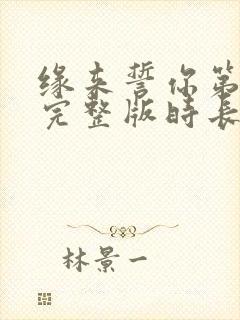 缘来誓你第
完整版時長
林景一